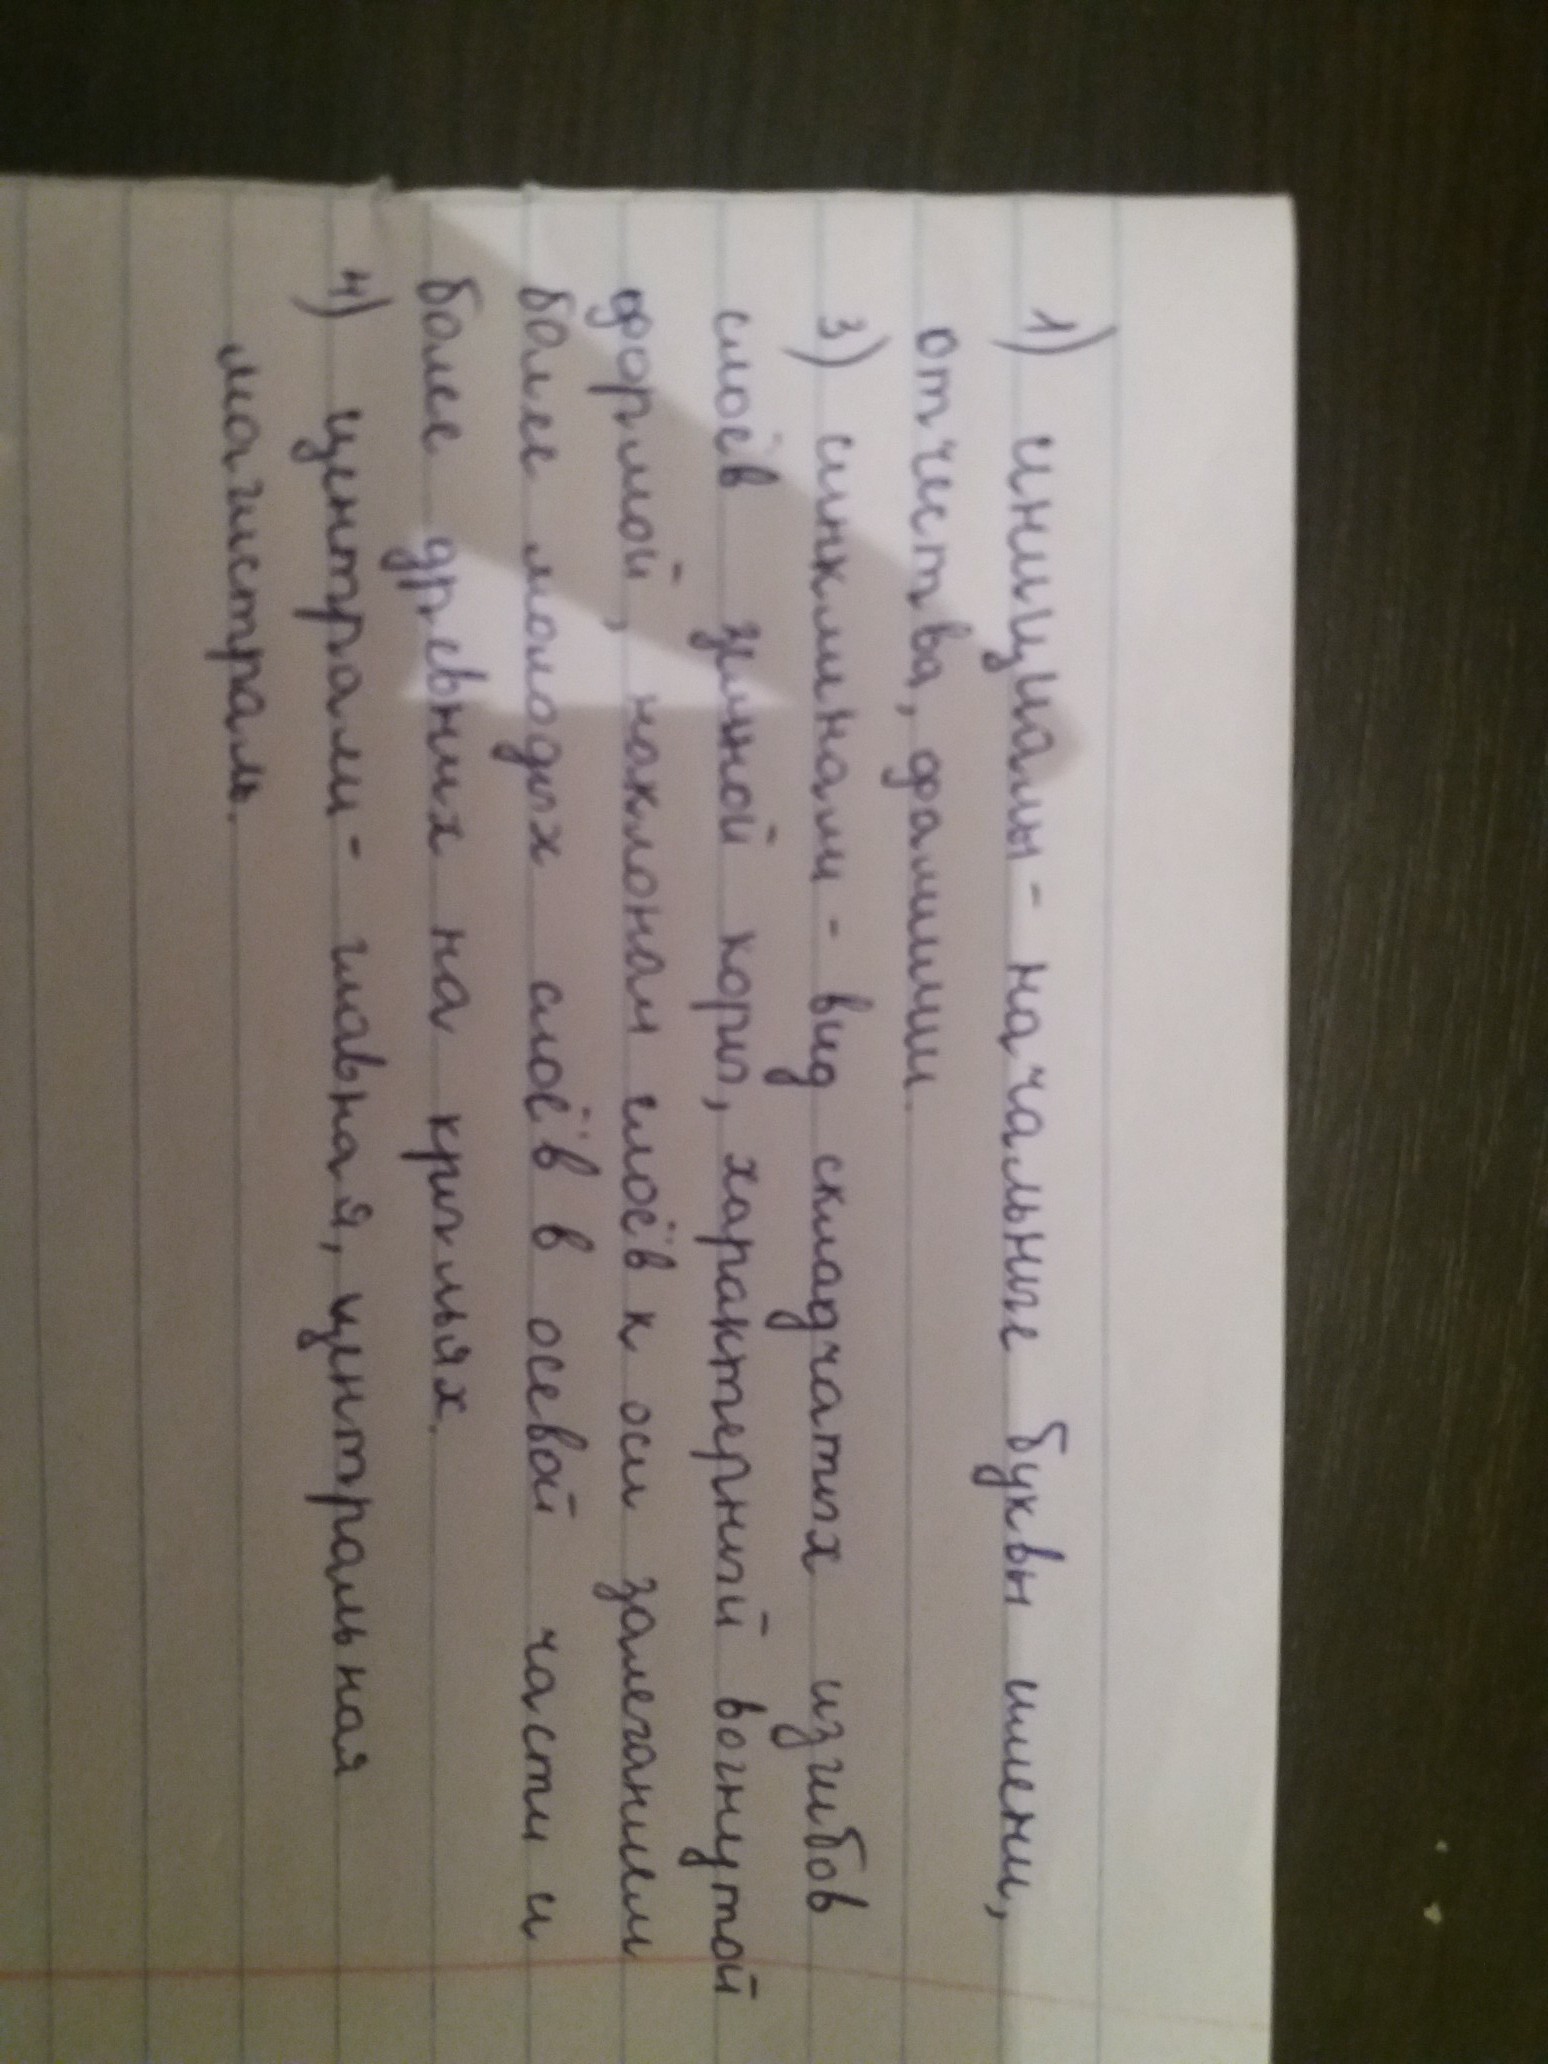 1) инициалы - начальные буквы имени,
отчества, фамилии.
3) синклинали - вид складчатых изгибов
слоёв земной коры, характерный вогнутой
формой, наклоном слоёв к оси залеганием
более молодых слоёв в осевой части и
более древних на крыльях.
4) централи - главная, центральная
магистраль.